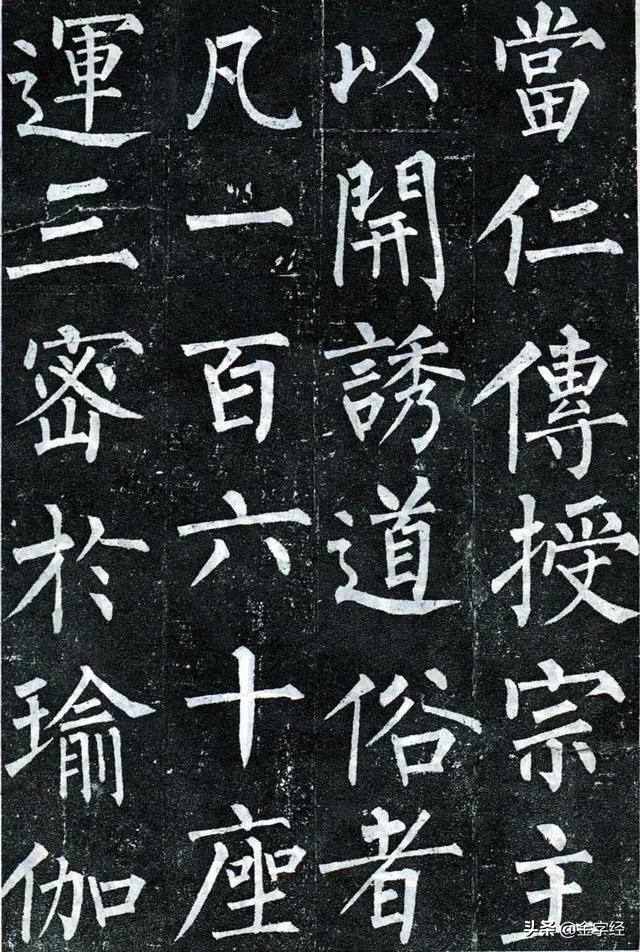 當仁傳授宗主
以開誘道俗者
凡一百六十座
運三密於瑜伽
头条@金字经